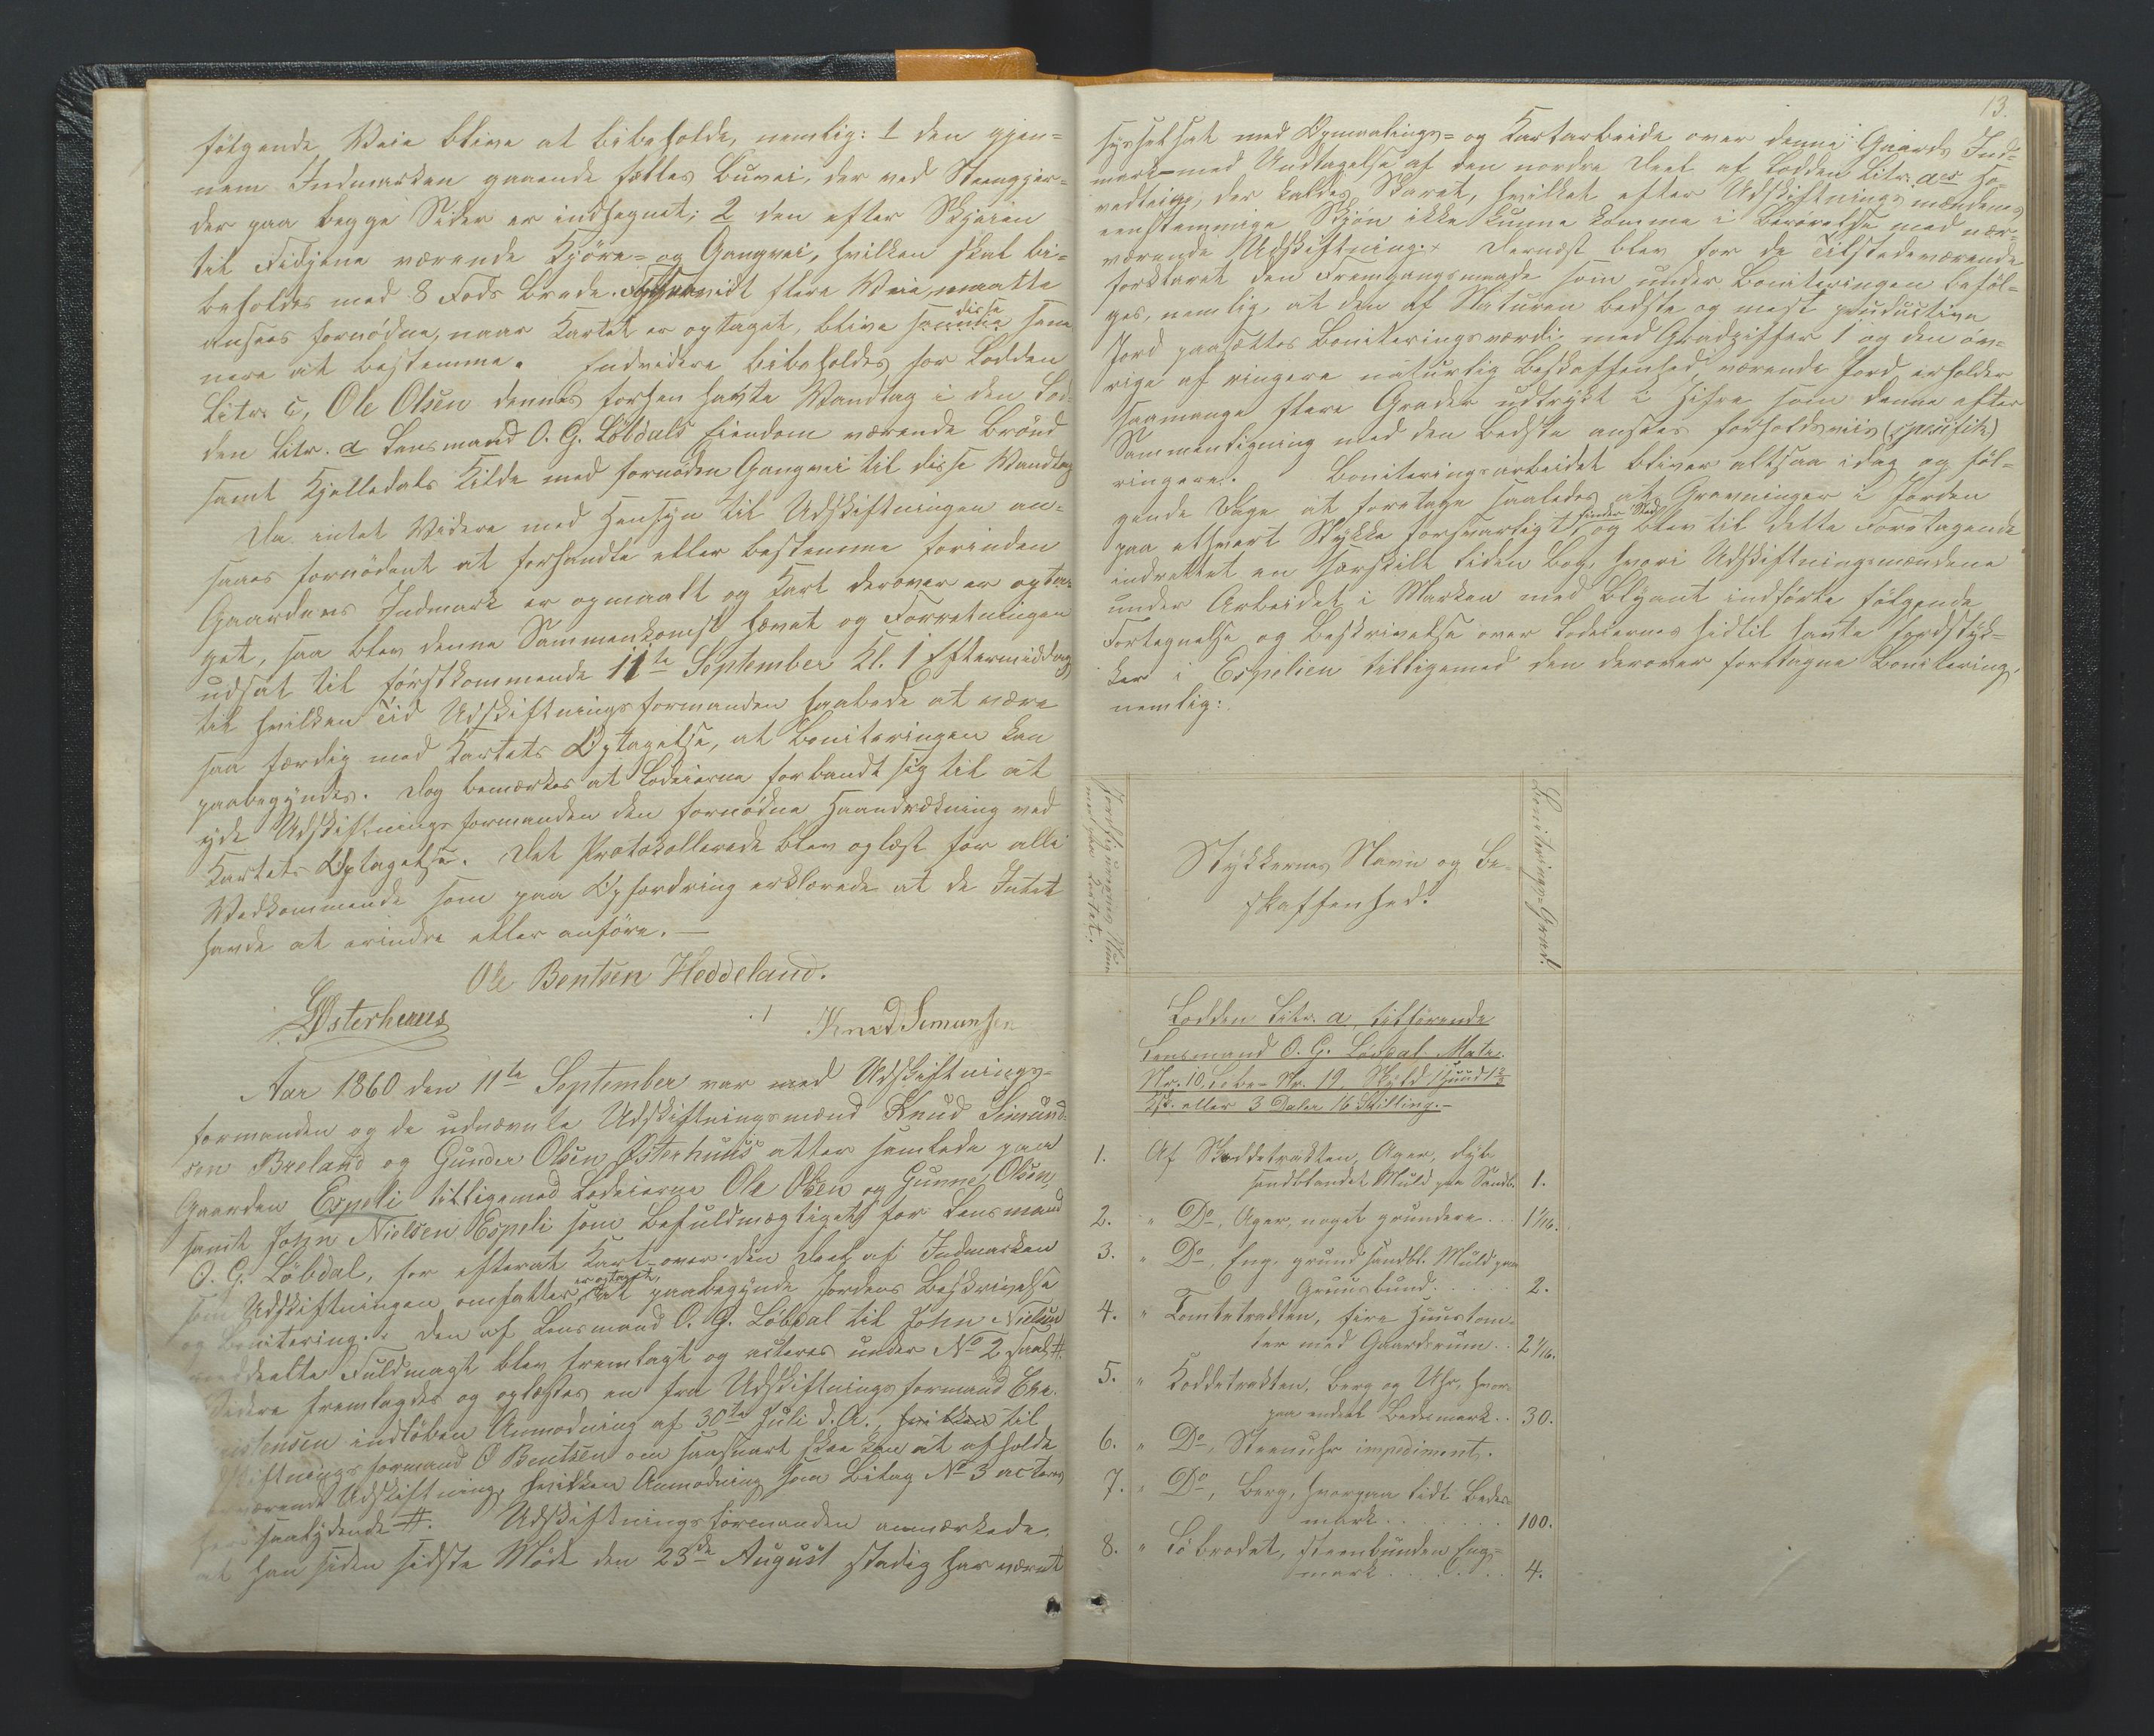 følgende Veie blive at bibeholde, nemlig: 1 den gjen-
nem Indmarken gaaende fælles Buvei, der ved Steengjer-
der paa begge Sider er indhegnet; 2 den efter Skjæien
til Fidjene værende Kjøre- og Gangvei, hvilken skal bi-
beholdes med 8 Fods Brede. Forsaavidt flere Veie maatte
ansees fornødne, naar Kartet er optaget, blive disse sene
nere at bestemme. Endvidere bibeholdes for Lodden
Litr. c, Ole Olsen dennes forhen havte Vandtag i den Lod-
den Litr. a Lensmand O. G. Löbdals Eiendom værende Brönd
samt Kjelledals Kilde med fornøden Gangvei til disse Vandtag
Da intet Videre med Hensyn til Udskiftningen an-
saaes fornødent at forhandle eller bestemme forinden
Gaardens Indmark er opmaalt og Kart derover er opta-
get, saa blev denne Sammenkomst hævet og Forretningen
udsat til førstkommende 11te September Kl. 1 Eftermiddag
til hvilken Tid Udskiftningsformanden haabede at være
saa færdig med Kartets Optagelse, at Boniteringen kan
paabegyndes. Dog bemærkes at Lodeierne forbandt sig til at
yde Udskiftningsformanden den fornødne Haandrækning ved
Kartets Optagelse. Det Protokollerede blev oplæst for alle
Vedkommende som paa Opfordring erklærede at de Intet
havde at erindre eller anføre.—
Ole Bentsen Heddeland.
GOsterhuus Knud Simunsen
Aar 1860 den 11te September var med Udskiftnings-
formanden og de udnævnte Udskiftningsmænd Knud Simund-
sen Breland og Gunder Olsen Østerhuus atter samlede paa
Gaarden Espeli tilligemed Lodeierne Ole Olsen og Gunne Olsen,
samt John Nielsen Espeli som Befuldmægtiget for Lensmand
O. G. Löbdal, for efterat Kart over den Deel af Indmarken
som Udskiftningen omfatter er optaget, at paabegynde Jordens Beskrivelse
og Bonitering. Den af Lensmand O. G. Löbdal til John Nielsen
meddeelte Fuldmagt blev fremlagt og acteres under No 2 saal. #.
Videre fremlagdes og oplæstes en fra Udskiftningsformand Chr.
istensen indløben Anmodning af 30te Juli d. A., hvilken til
Udskiftningsformand O Bentsen om saasnart skee kan at afholde
nærværende Udskiftning, hvilken Anmodning som Bilag No 3 acteres
her saalydende #. Udskiftningsformanden anmærkede,
at han siden sidste Møde den 23de August stadig har været
13.
sysselsat med Opmaalings- og Kartarbeide over denne Gaards Ind-
mark med Undtagelse af den nordre Deel af Lodden Litr. aes ho-
vedteig, der kaldes Skaret, hvilket efter Udskiftningsmændenes
eenstemmige Skjøn ikke kunne komme i Berørelse med nær-
værende Udskiftning. Dernæst blev for de Tilstedeværende
forklaret den Fremgangsmaade som under Boniteringen beføl-
ges, nemlig, at den af Naturen bedste og mest productive
Jord paasættes Boniteringsværdi med Gradziffer 1 og den øv-
rige af ringere naturlig Beskaffenhed værende Jord erholder
saamange flere Grader udtrykt i Zifre som denne efter
Sammenligning med den bedste ansees forholdsviis (specifik)
ringere. Boniteringsarbeidet bliver altsaa idag og føl-
gende Dage at foretage saaledes at Gravninger i Jorden
paa ethvert Stykke forsvarligt finder Sted og blev til dette Foretagende
indrettet en særskilt liden Bog, hvori Udskiftningsmændene
under Arbeidet i Marken med Blyant indførte følgende
Fortegnelse og Beskrivelse over Lodeiernes hidtil havte Jordstyk-
ker i Espelien tilligemed den derover foretagne Bonitering,
nemlig:
Jordfigurernes Num-
mer paa Kartet.
Stykkernes Navn og Be-
skaffenhed.
Boniterings-Grad.
Lodden Litr. a, tilhørende
Lensmand O. G. Löbdal Matr.
Nr. 10, Løbe-Nr. 19 Skyld 1 Huud 1 2/3
Sk. eller 3 Daler 16 Skilling.-
1. Af Stoddetrakten, Ager, dyb
sandblandet Muld paa Sandb. 1.
2. " Do, Ager, noget grundere . . 1 1/16.
3. " Do, Eng, grund sandbl. Muld paa
Gruusbund . . . . . 2.
4. " Tomtetrakten, fire Huustom-
ter med Gaardsrum . . 2 1/16.
5. " Koddetrakten, Berg og Uhr, hvor-
paa endeel Bedemark . . 30.
6. " Do, Steenuhr impediment.
7. " Do, Berg, hvorpaa lidt Bede-
mark . . . . . . 100.
8. " Löbrodet, steenbunden Eng-
mark . . . . . . 4.